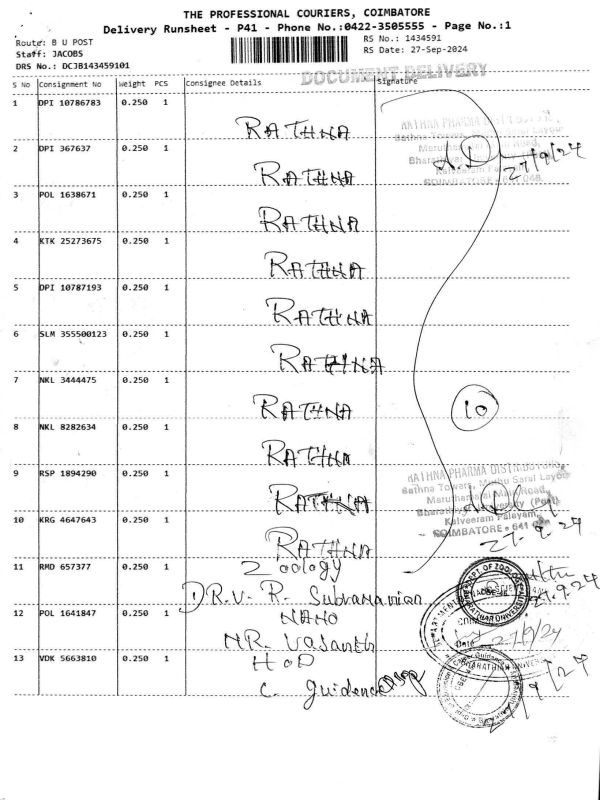 THE PROFESSIONAL COURIERS, COIMBATORE
Delivery Runsheet - P41 - Phone No.:0422-3505555 - Page No.:1
Route: B U POST
RS No.: 1434591
Staff: JACOBS
RS Date: 27-Sep-2024
DRS No.: DCJB143459101
DOCUMENT DELIVERY
S No Consignment No Weight PCS Consignee Details Signature
1 DPI 10786783 0.250 1 RATHNA
2 DPI 367637 0.250 1 RATHNA
27/9/24
3 POL 1638671 0.250 1 RATHNA
4 KTK 25273675 0.250 1 RATHNA
5 DPI 10787193 0.250 1 RATHNA
6 SLM 355500123 0.250 1 RATHNA
7 NKL 3444475 0.250 1 RATHNA
10
8 NKL 8282634 0.250 1 RATHNA
9 RSP 1894290 0.250 1 RATHNA
RATHNA PHARMA DISTRIBUTORS
Maruthamalai Main Road,
Bharathiyar University (Post)
Kalveeram Palayam,
COIMBATORE - 641 046
27.9.24
10 KRG 4647643 0.250 1 RATHNA
11 RMD 657377 0.250 1 Zoology
DR.V.R. Subramanian
12 POL 1641847 0.250 1 NANO
MR. Vasanth
27/9/24
13 VDK 5663810 0.250 1 HOD
C. Guidence
27/9/24